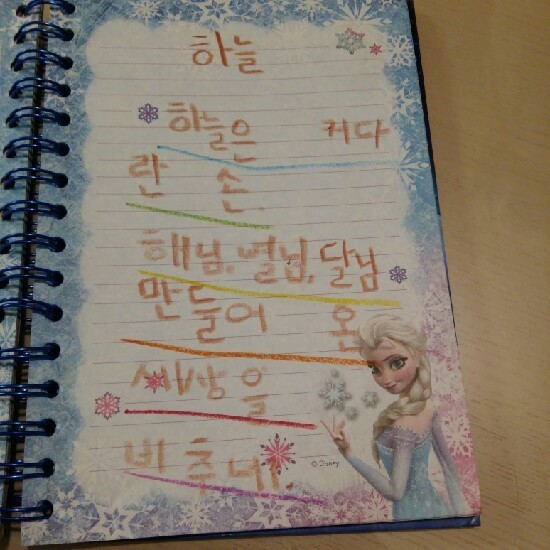 하늘
하늘은 커다
란 손
해님, 별님, 달님
만들어 온
세상을
비추네.
© Disney